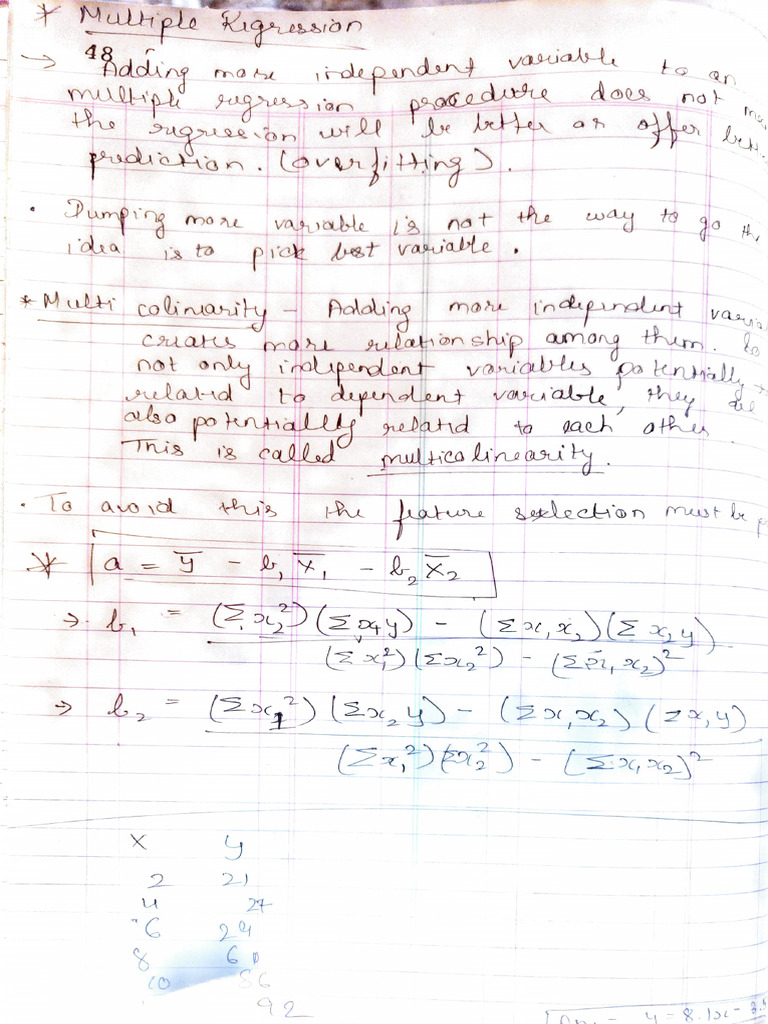 * Multiple Regression
48
→ Adding more independent variable to an
multiple regression procedure does not
the regression will be better or offer
prediction. (overfitting).
• Dumping more variable is not the way to go
idea is to pick best variable.
* Multi coliniarity - Adding more independent
creates more relationship among them. So
not only independent variables potentially
related to dependent variable, they
also potentially related to each other.
This is called multicolinearity.
• To avoid this the feature selection must be
* a = ȳ - b₁ x̄₁ - b₂ x̄₂
→ b₁ = (Σx₂²)(Σx₁y) - (Σx₁x₂)(Σx₂y)
(Σx₁²)(Σx₂²) - (Σx₁x₂)²
→ b₂ = (Σx₁²)(Σx₂y) - (Σx₁x₂)(Σx₁y)
(Σx₁²)(Σx₂²) - (Σx₁x₂)²
x y
2 21
4 27
6 29
8 60
10 86
92